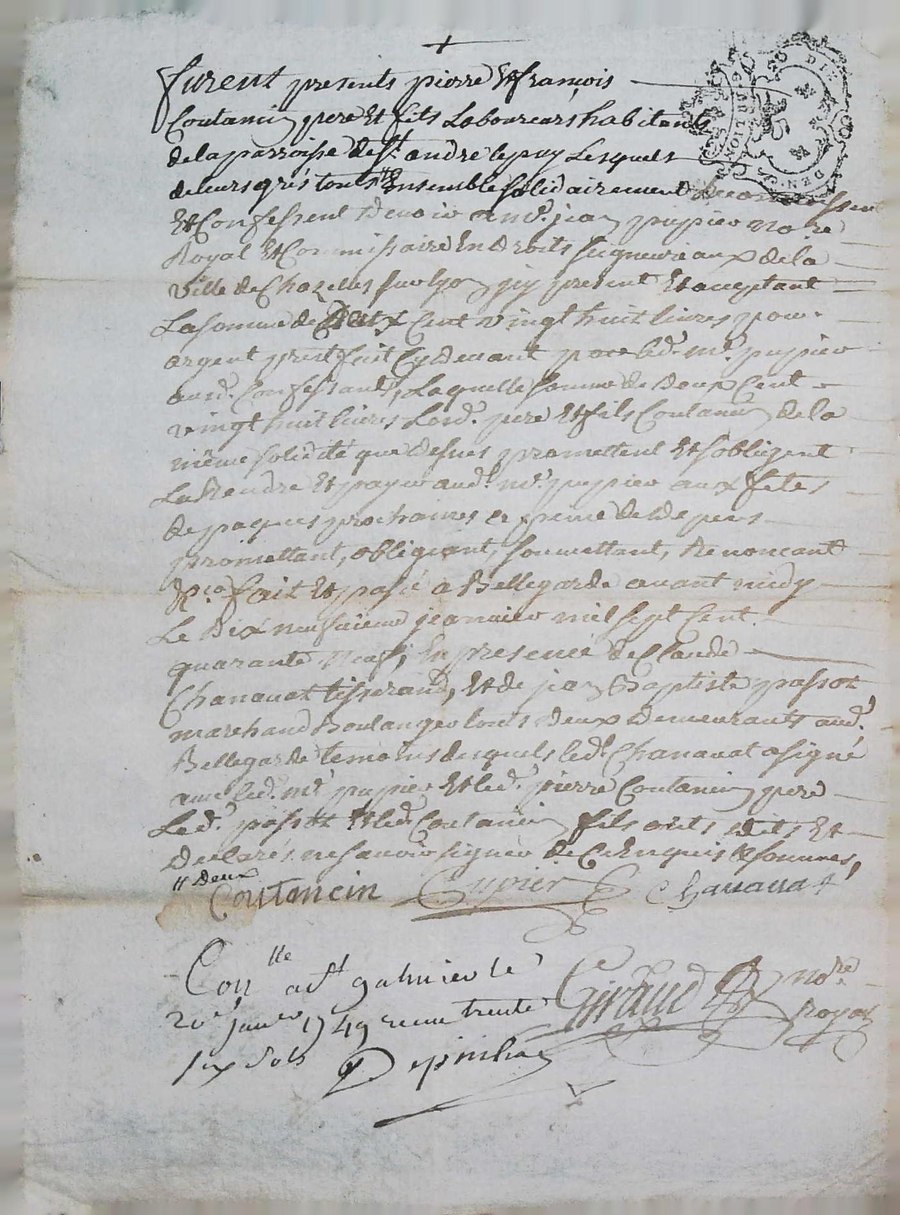 +
furent presents pierre et françois
Coutancin pere et fils Laboureurs habitants
de la parroisse de St. andre le puy Lesquels
de leurs grés touts Ensemble solidairement Reconnoissent
Et Confessent devoir a me. jean pupier no.re
Royal Et Commissaire En Droits seigneuriaux de la
ville de Chazelles sur lyon jcy present Et acceptant
La somme de Deux Cent vingt huit livres pour
argent prest fait Cy devant par led. me. pupier
aud. Confessants, Laquelle somme de Deux Cent
vingt huit livres Lesd. pere Et fils Coutancin de la
même solidité que dessus promettent Et sobligent
La Rendre Et payer aud. me. pupier aux fêtes
de paques prochaines a peine de depens
promettant, obligeant, soumettant, Renoncant
&c.a fait Et passé a Bellegarde avant midy
Le Dix neufvieme jeanvier mil sept cent
quarante neuf, En presence de Claude
Chanavat tisserand, Et de jean Baptiste passot
marchand Boulanger touts deux Demeurants aud.
Bellegarde temoins desquels led. Chanavat a signé
avec led. me. pupier Et led. pierre Coutancin pere
Led. passot Et led. Coutancin fils onts dits Et
Declarés ne savoir signer de Ce Enquis & sommés,
# Deux
Coutancin Pupier Chanavat
Con.lle a St galmier le
20e janer 1749 recu trente
six sols
Giraud no.re
royal